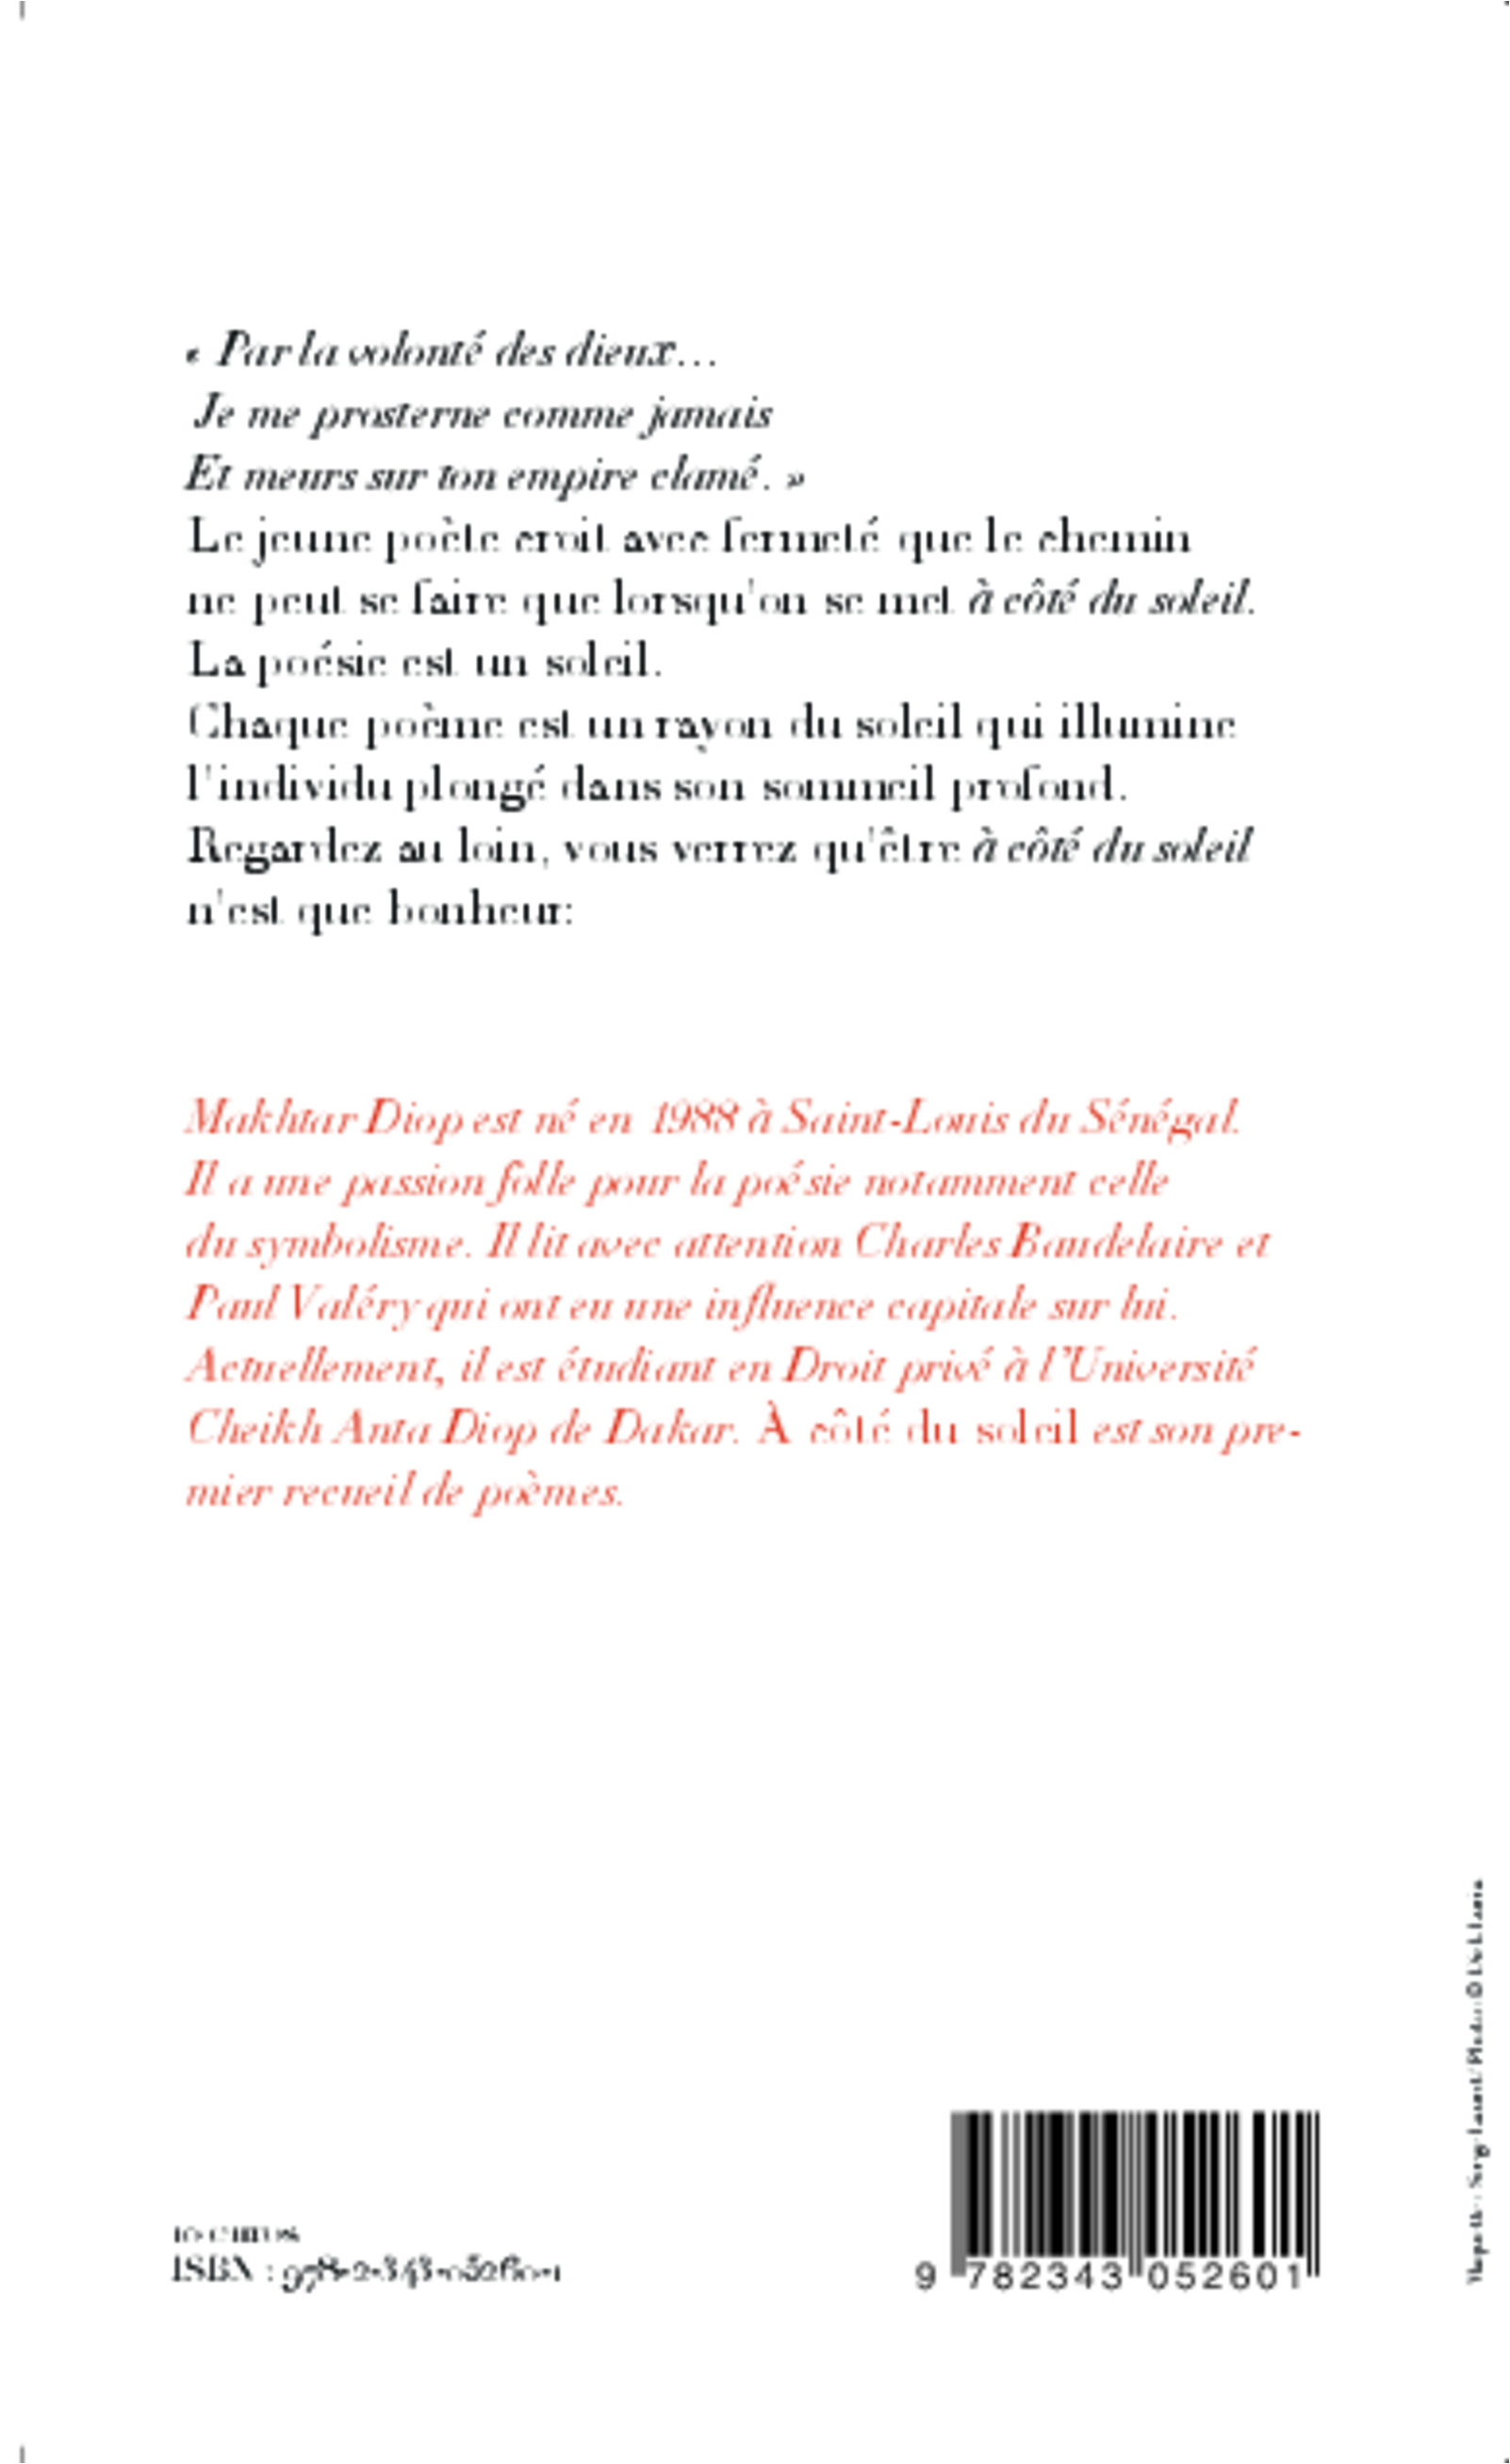 « Par la volonté des dieux...
Je me prosterne comme jamais
Et meurs sur ton empire clamé. »
Le jeune poète croit avec fermeté que le chemin
ne peut se faire que lorsqu'on se met à côté du soleil.
La poésie est un soleil.
Chaque poème est un rayon du soleil qui illumine
l'individu plongé dans son sommeil profond.
Regardez au loin, vous verrez qu'être à côté du soleil
n'est que bonheur.
Makhtar Diop est né en 1988 à Saint-Louis du Sénégal.
Il a une passion folle pour la poésie notamment celle
du symbolisme. Il lit avec attention Charles Baudelaire et
Paul Valéry qui ont eu une influence capitale sur lui.
Actuellement, il est étudiant en Droit privé à l'Université
Cheikh Anta Diop de Dakar. À côté du soleil est son pre-
mier recueil de poèmes.
10 euros
ISBN : 978-2-343-05260-1
9 782343 052601